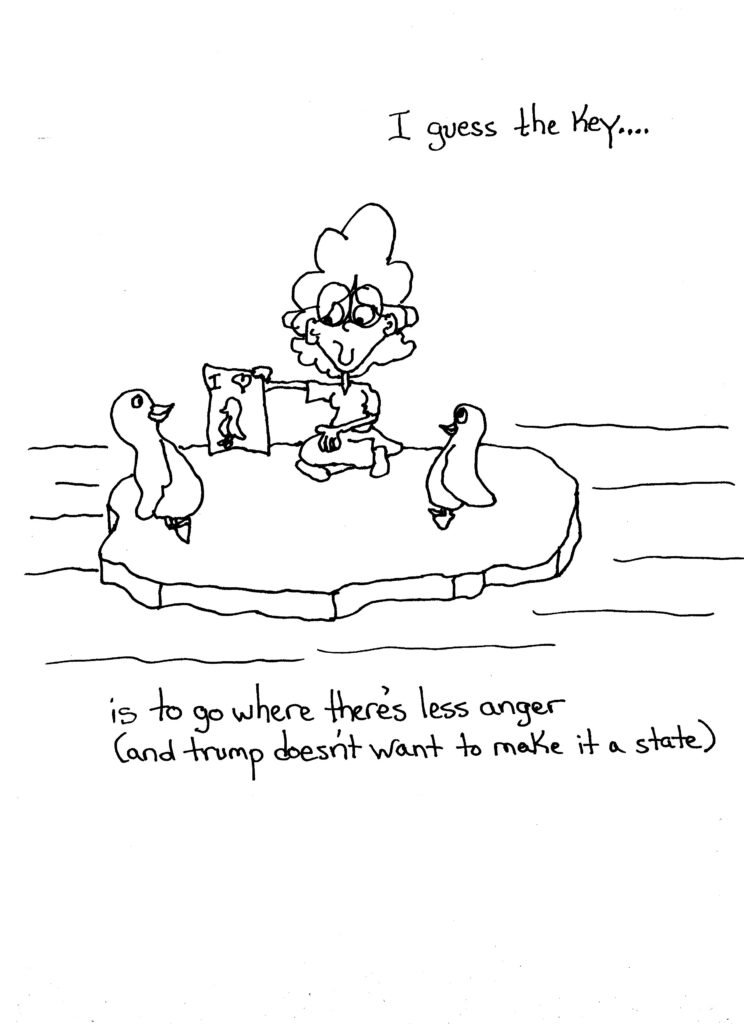 I guess the key....
I
is to go where there's less anger
(and trump doesn't want to make it a state)